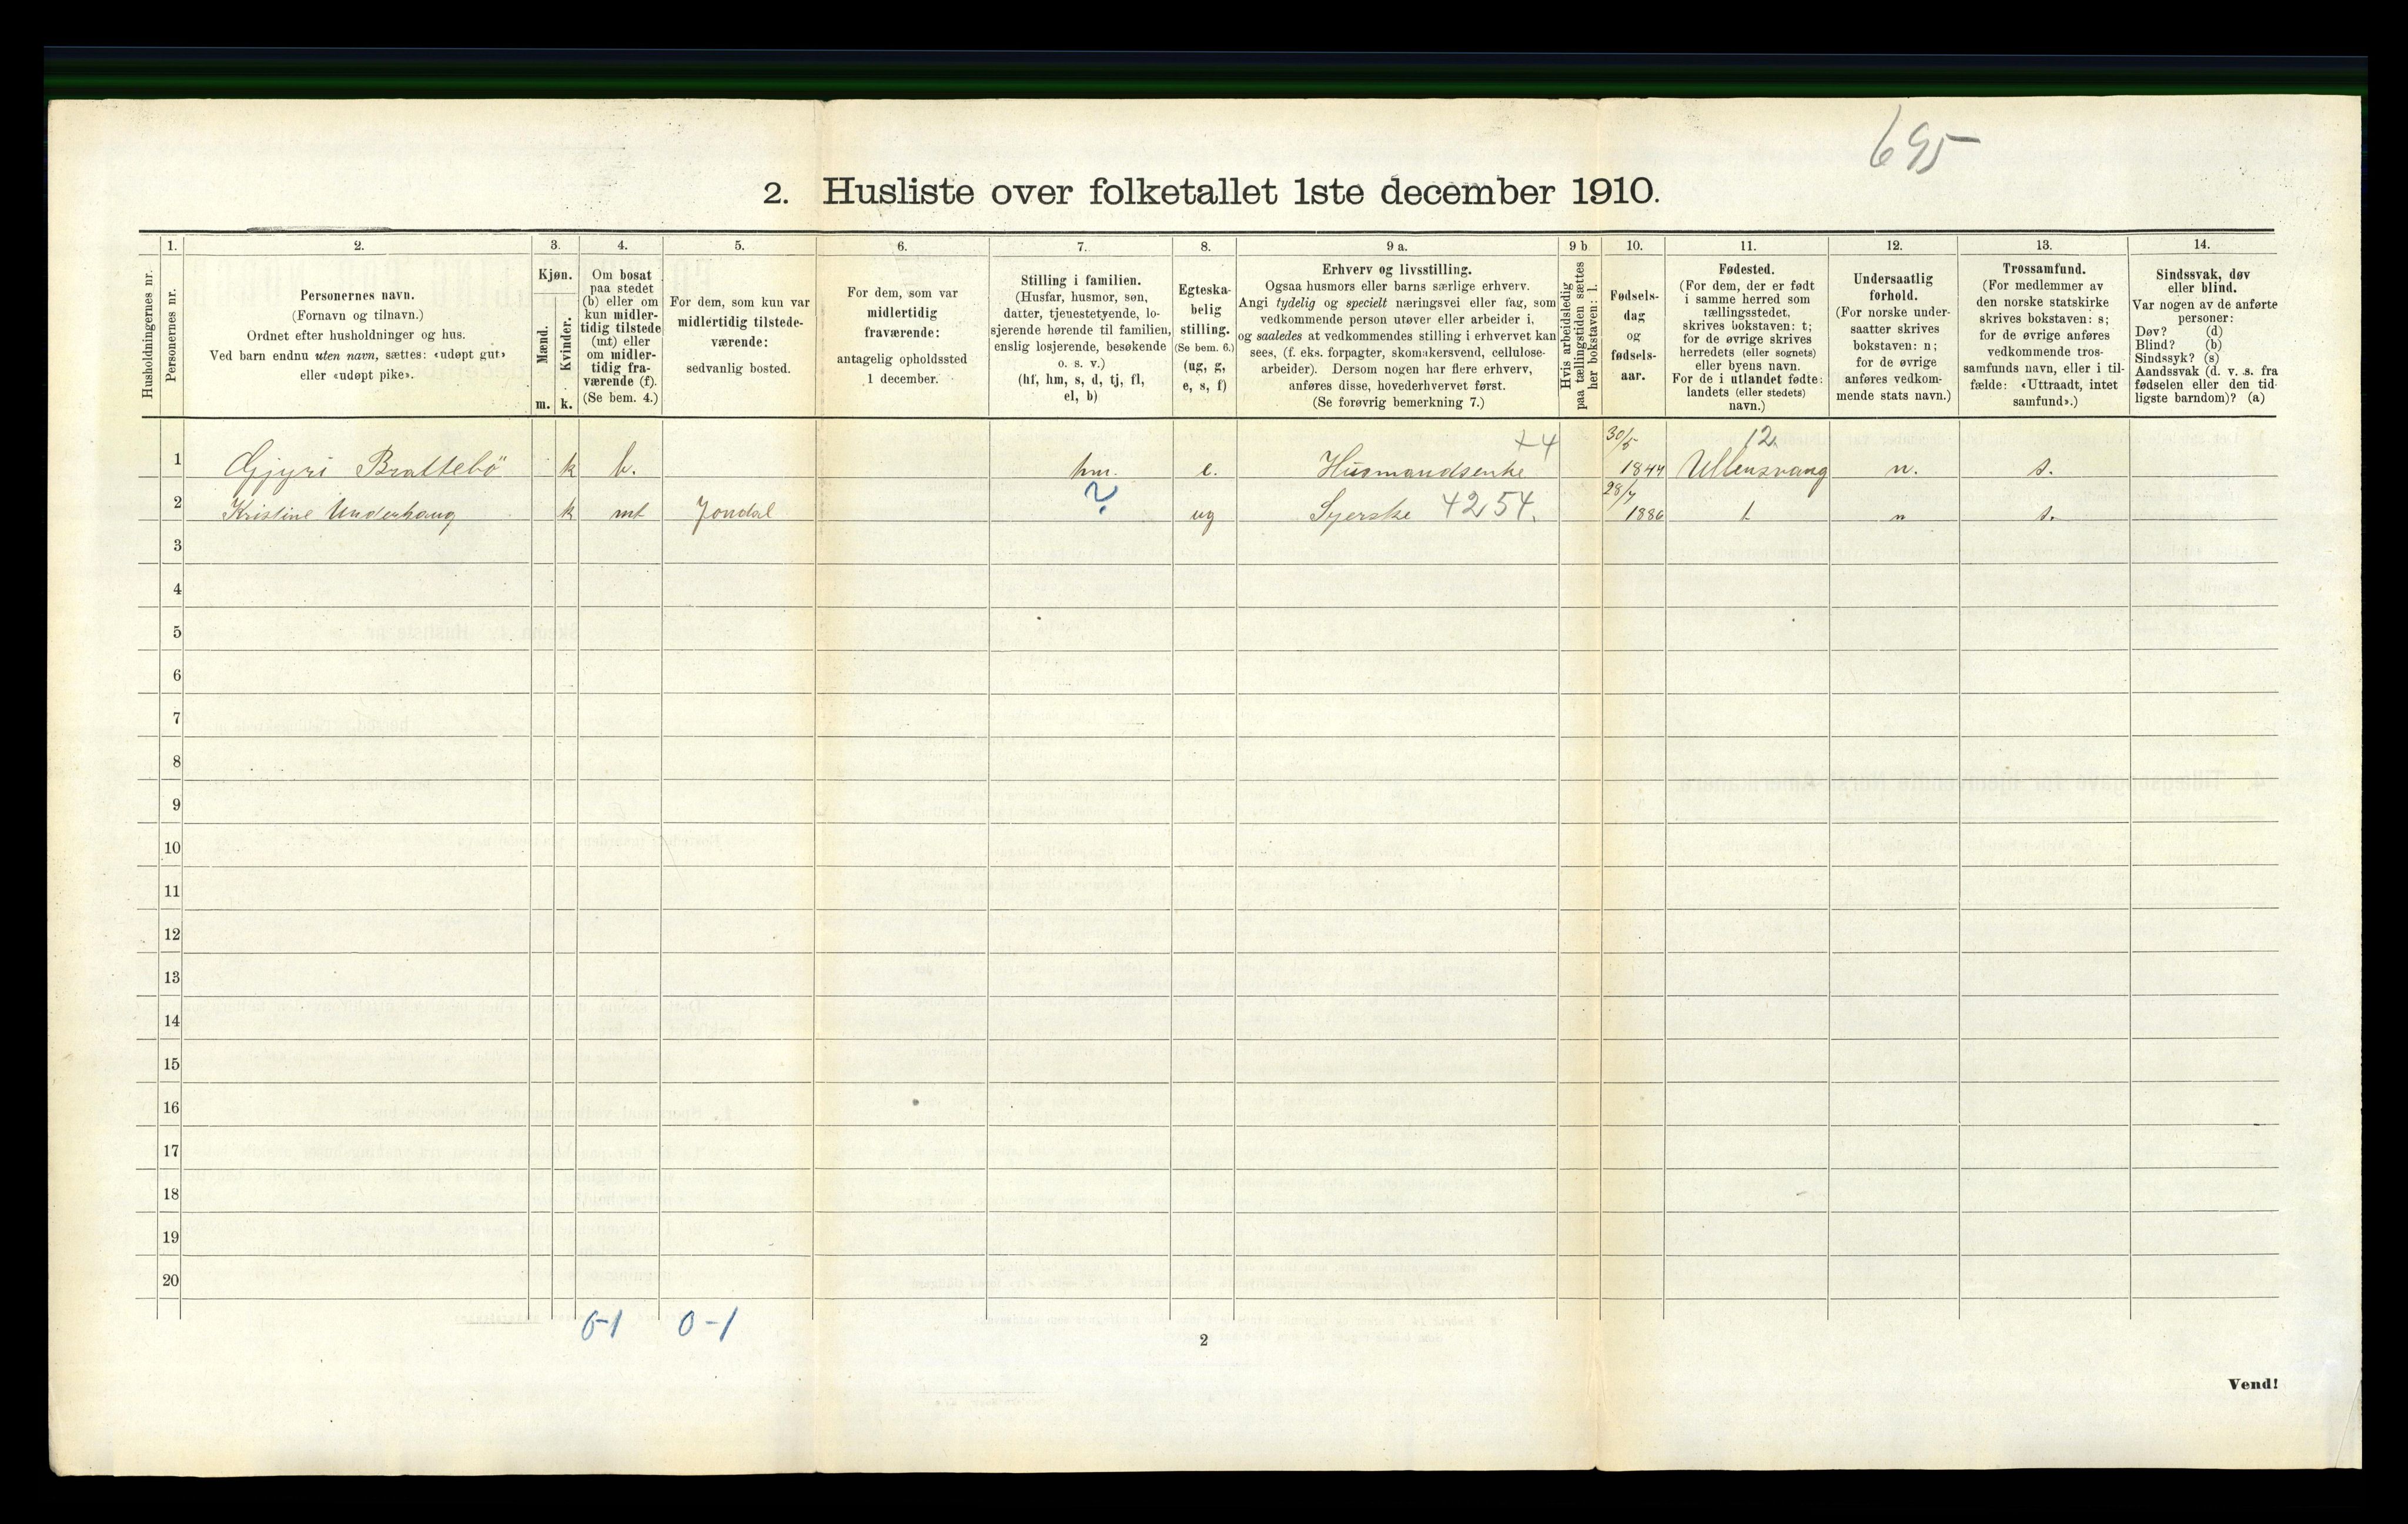 695
2. Husliste over folketallet 1ste december 1910.
Husholdningernes nr.
1.
Personernes nr.
2.
Personernes navn.
(Fornavn og tilnavn.)
Ordnet efter husholdninger og hus.
Ved barn endnu uten navn, sættes: «udøpt gut»
eller «udøpt pike».
3.
Kjøn.
Mænd.
Kvinder.
m.
k.
4.
Om bosat
paa stedet
(b) eller om
kun midler-
tidig tilstede
(mt) eller
om midler-
tidig fra-
værende (f).
(Se bem. 4.)
5.
For dem, som kun var
midlertidig tilstede-
værende:
sedvanlig bosted.
6.
For dem, som var
midlertidig
fraværende:
antagelig opholdssted
1 december.
7.
Stilling i familien.
(Husfar, husmor, søn,
datter, tjenestetyende, lo-
sjerende hørende til familien,
enslig losjerende, besøkende
o. s. v.)
(hf, hm, s, d, tj, fl,
el, b)
8.
Egteska-
belig
stilling.
(Se bem. 6.)
(ug, g,
e, s, f)
9 a.
Erhverv og livsstilling.
Ogsaa husmors eller barns særlige erhverv.
Angi tydelig og specielt næringsvei eller fag, som
vedkommende person utøver eller arbeider i,
og saaledes at vedkommendes stilling i erhvervet kan
sees, (f. eks. forpagter, skomakersvend, cellulose-
arbeider). Dersom nogen har flere erhverv,
anføres disse, hovederhvervet først.
(Se forøvrig bemerkning 7.)
9 b
Hvis arbeidsledig
paa tællingstiden sættes
her bokstaven: l.
10.
Fødsels-
dag
og
fødsels-
aar.
11.
Fødested.
(For dem, der er født
i samme herred som
tællingsstedet,
skrives bokstaven: t;
for de øvrige skrives
herredets (eller sognets)
eller byens navn.
For de i utlandet fødte:
landets (eller stedets)
navn.)
12.
Undersaatlig
forhold.
(For norske under-
saatter skrives
bokstaven: n;
for de øvrige
anføres vedkom-
mende stats navn.)
13.
Trossamfund.
(For medlemmer av
den norske statskirke
skrives bokstaven: s;
for de øvrige anføres
vedkommende tros-
samfunds navn, eller i til-
fælde: «Uttraadt, intet
samfund».)
14.
Sindssvak, døv
eller blind.
Var nogen av de anførte
personer:
Døv? (d)
Blind? (b)
Sindssyk? (s)
Aandssvak (d. v. s. fra
fødselen eller den tid-
ligste barndom)? (a)
+4 30/5 12
1 Gjyri Brattebö k b. hm. e. Husmandsenke 1844 Ullensvang n. s.
? 28/7
2 Kristine Underhaug k mt Jondal ug Syerske 4254. 1886 t n s.
3
4
5
6
7
8
9
10
11
12
13
14
15
16
17
18
19
20
0-1 0-1
2
Vend!